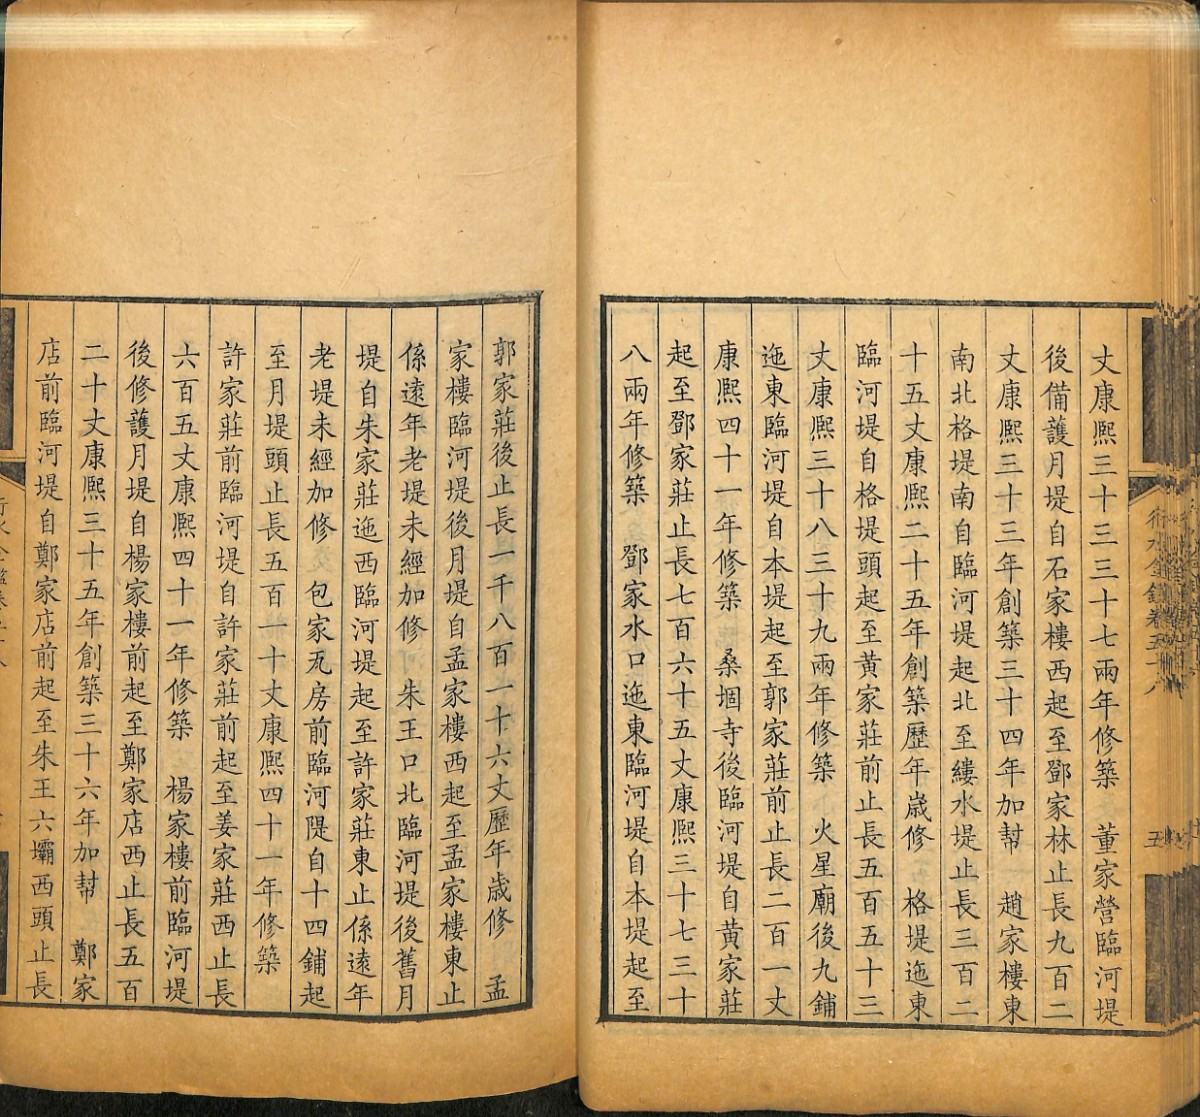 丈康熙三十三三十七兩年修築　董家營臨河堤
後備護月堤自石家樓西起至鄧家林止長九百二
丈康熙三十三年創築三十四年加幇　趙家樓東
南北格堤南自臨河堤起北至縷水堤止長三百二
十五丈康熙二十五年創築歷年歲修　格堤迤東
臨河堤自格堤頭起至黃家莊前止長五百五十三
丈康熙三十八三十九兩年修築　火星廟後九鋪
迤東臨河堤自本堤起至郭家莊前止長二百一丈
康熙四十一年修築　桑堌寺後臨河堤自黃家莊
起至鄧家莊止長七百六十五丈康熙三十七三十
八兩年修築　鄧家水口迤東臨河堤自本堤起至
郭家莊後止長一千八百一十六丈歷年歲修　孟
家樓臨河堤後月堤自孟家樓西起至孟家樓東止
係遠年老堤未經加修　朱王口北臨河堤後舊月
堤自朱家莊迤西臨河堤起至許家莊東止係遠年
老堤未經加修　包家瓦房前臨河隄自十四鋪起
至月堤頭止長五百一十丈康熙四十一年修築
許家莊前臨河堤自許家莊前起至姜家莊西止長
六百五丈康熙四十一年修築　楊家樓前臨河堤
後修護月堤自楊家樓前起至鄭家店西止長五百
二十丈康熙三十五年創築三十六年加幇　鄭家
店前臨河堤自鄭家店前起至朱王六壩西頭止長
行水金鑑卷五十八
五